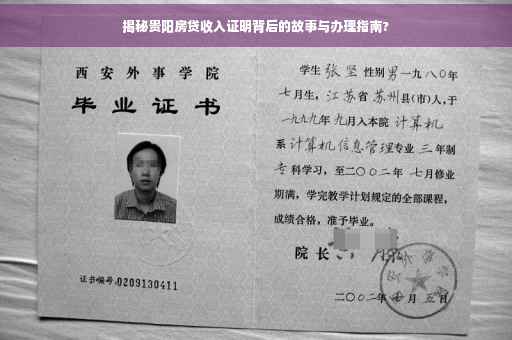 揭秘贵阳房贷收入证明背后的故事与办理指南?
西安外事学院
毕业证书
证书编号:0209130411
学生 张坚 性别 男 一九八〇年
七月生, 江苏省 苏州县(市)人,于
一九九九年 九月入本院 计算机
系 计算机信息管理专业 三 年制
专 科学习, 至二〇〇二年 七月修业
期满, 学完教学计划规定的全部课程,
成绩合格, 准予毕业。
院长
二〇〇二年 月五日